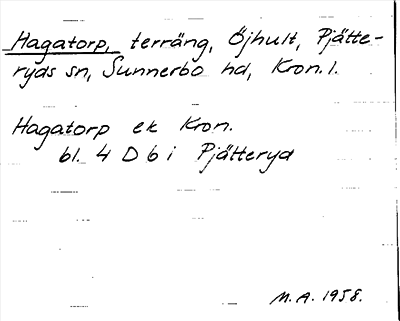 Hagatorp, terräng, Öjhult, Pjätte-
ryds sn, Sunnerbo hd, Kron. l.
Hagatorp ek Kron.
bl. 4 D 6 i Pjätteryd
M.A. 1958.